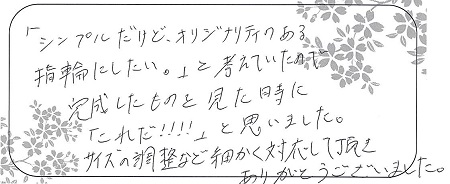 「シンプルだけど、オリジナリティのある
指輪にしたい。」と考えていたので
完成したものを見た時に
「これだ!!!!」と思いました。
サイズの調整など細かく対応して頂き
ありがとうございました。